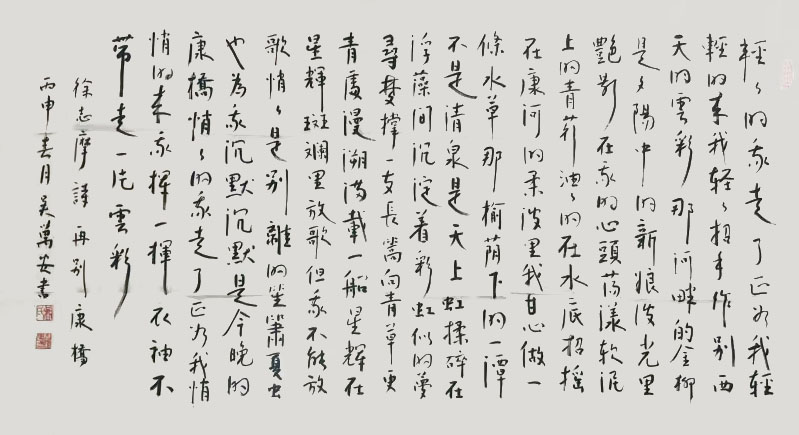 輕々的我走了正如我輕
輕的来我轻々招手作别西
天的雲彩那河畔的金柳
是夕陽中的新娘波光里
艷影在我的心頭荡漾软泥
上的青荇油々的在水底招摇
在康河的柔波里我甘心做一
條水草那榆荫下的一潭
不是清泉是天上虹揉碎在
浮藻间沉淀着彩虹似的夢
尋梦撑一支長篙向青草更
青處漫溯满載一船星輝在
星輝斑斓里放歌但我不能放
歌悄々是别離的笙簫夏虫
也為我沉默沉默是今晚的
康橋悄々的我走了正如我悄
悄的来我揮一揮衣袖不
带走一片雲彩
徐志摩詩再别康橋
丙申春月吴萬安書